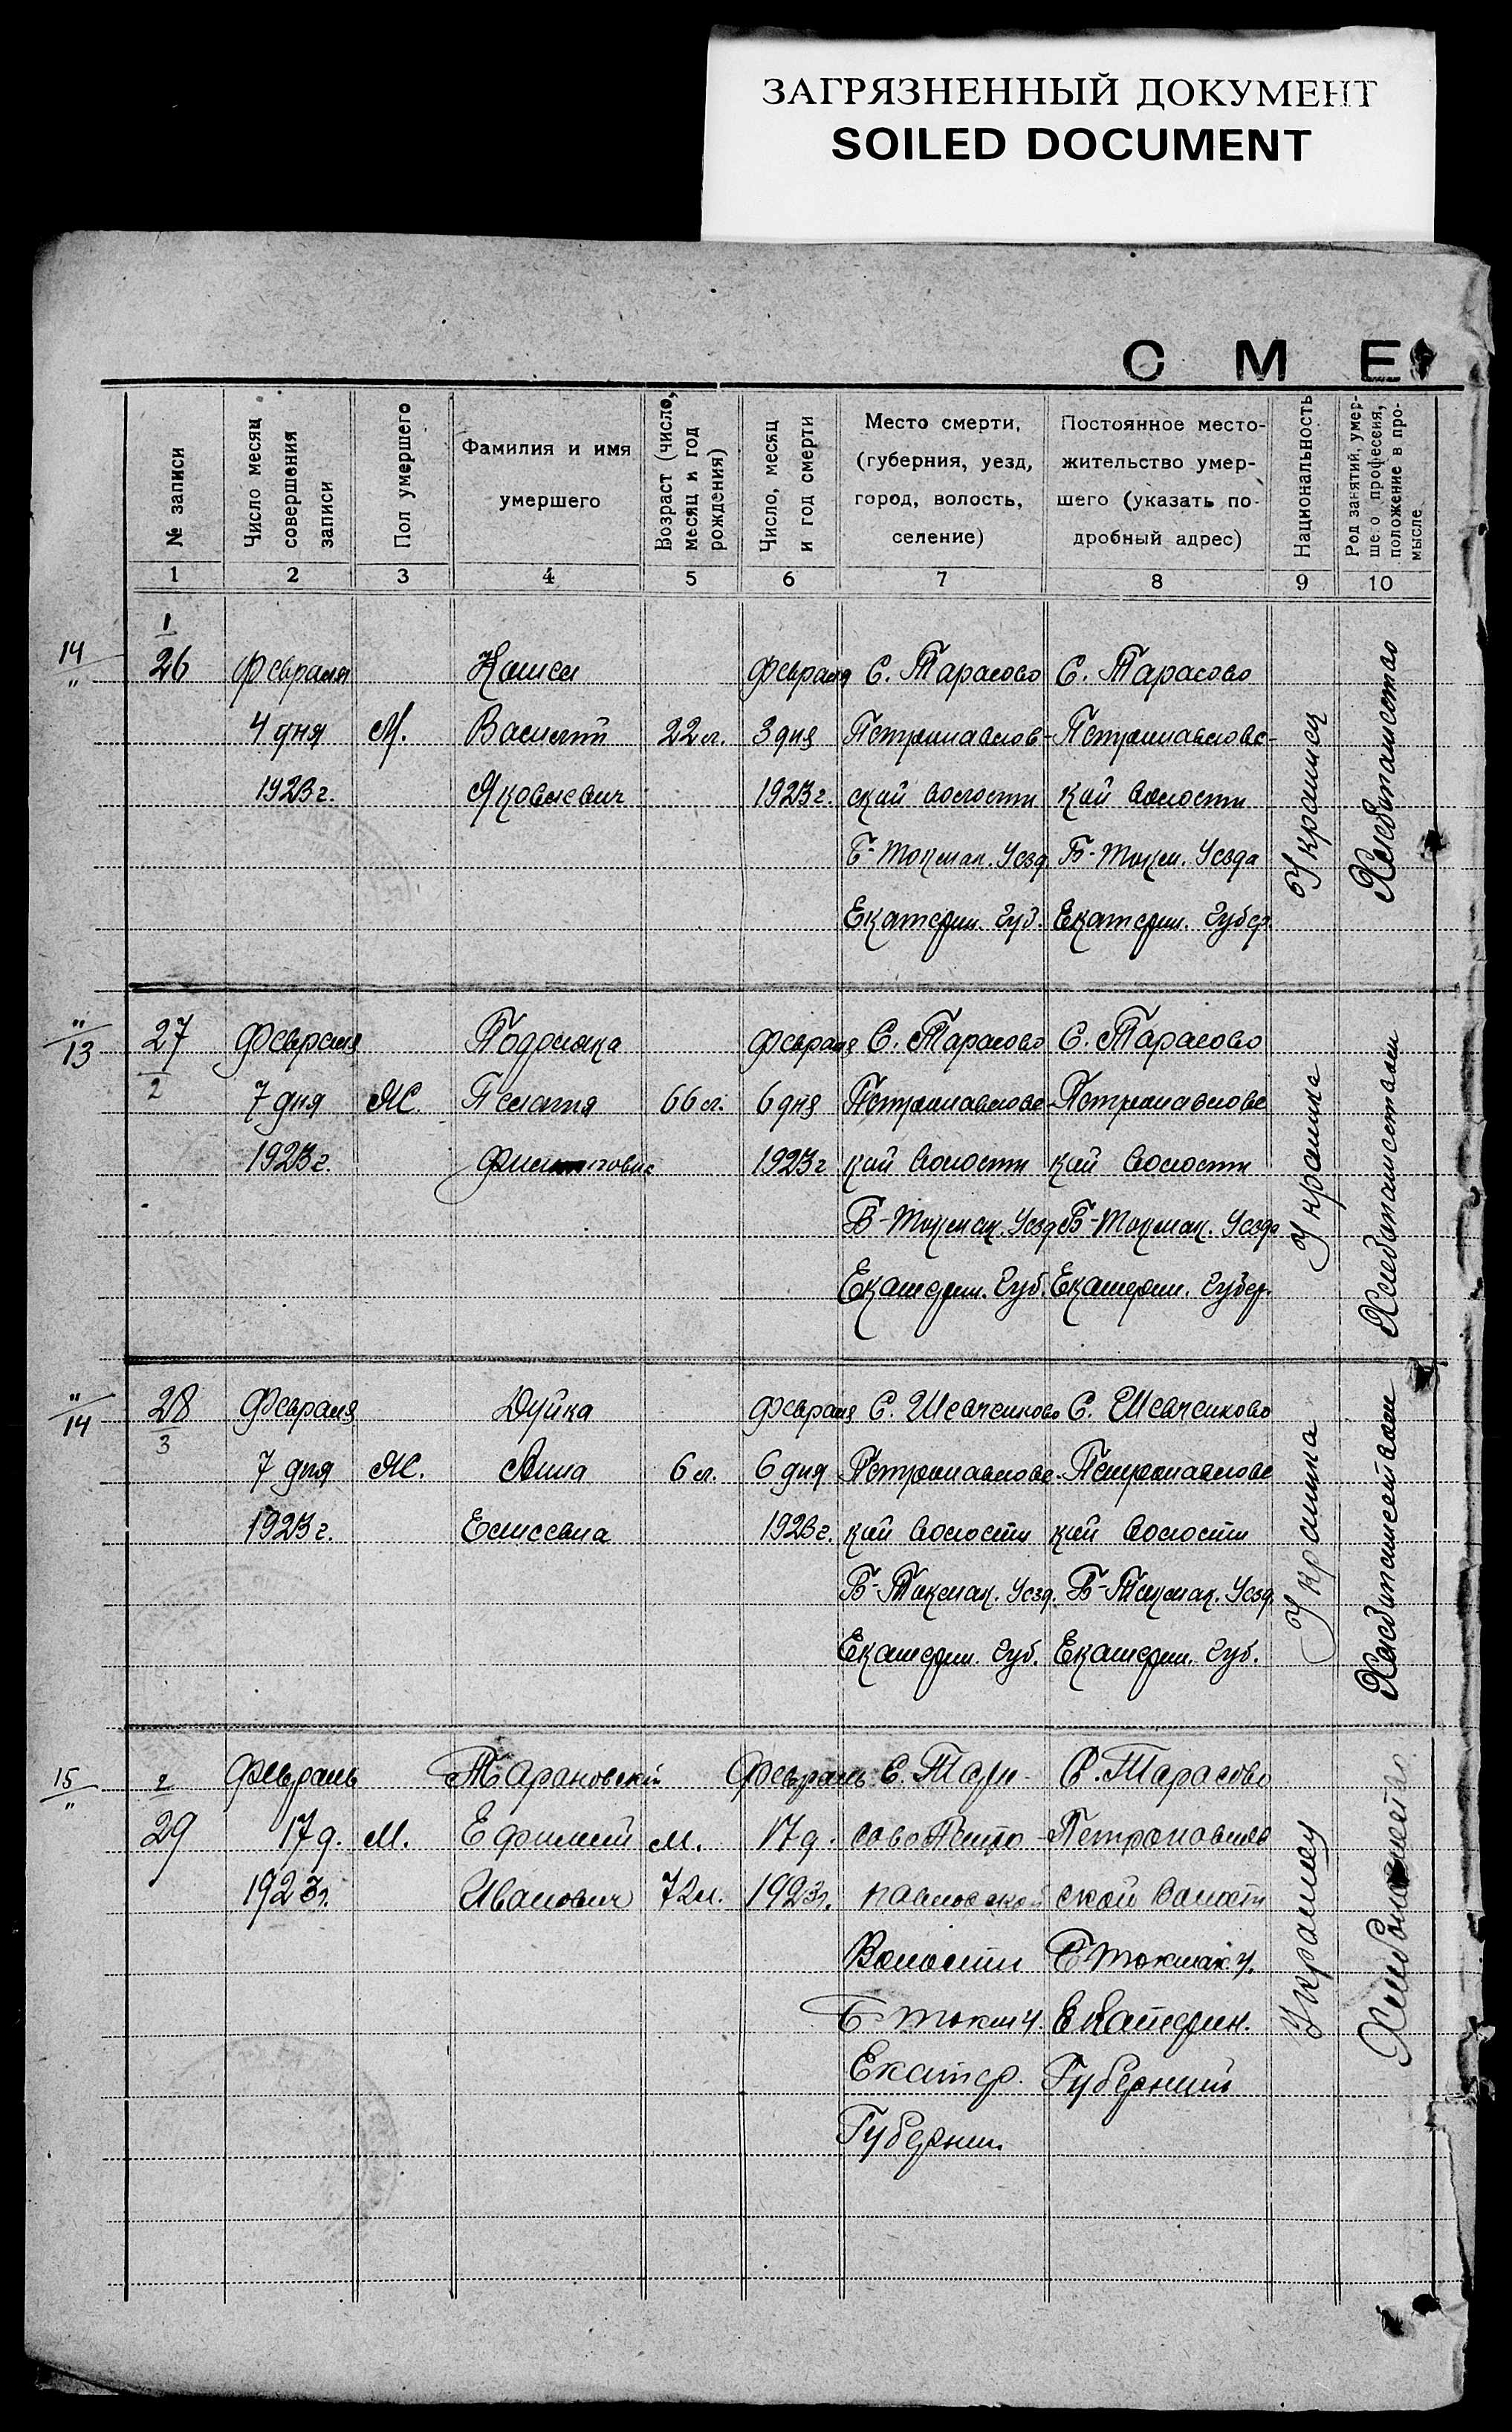 ЗАГРЯЗНЕННЫЙ ДОКУМЕНТ
SOILED DOCUMENT
С М Е
№ записи
Число месяц совершения записи
Пол умершего
Фамилия и имя умершего
Возраст (число, месяц и год рождения)
Число, месяц и год смерти
Место смерти, (губерния, уезд, город, волость, селение)
Постоянное место-жительство умер-шего (указать по-дробный адрес)
Национальность
Род занятий, умер-ше о профессия, положение в про-мысле
1 2 3 4 5 6 7 8 9 10
1
14 26 Февраля Февраля С. Тарасово С. Тарасово
4 дня М. Василий 22 л. 3 дня Петропавлов- Петропавловс-
1923 г. Яковлевич 1923 г. ской волости кой волости
Б-Токмак. Уезд. Б-Токм. Уезда
Екатерин. Губ. Екатерин. Губер.
Украинец
Хлебопашество
13 27 Февраля Февраля С. Тарасово С. Тарасово
2 7 дня Ж. Пелагия 66 л. 6 дня Петропавловс- Петропавловс
1923 г. 1923 г. кой волости кой волости
Б-Токмак. Уезд. Б-Токмак. Уезда
Екатерин. Губ. Екатерин. Губер.
Украинка
14 28 Февраля Дуйка Февраля С. Шевченково С. Шевченково
3 7 дня Ж. Анна 6 л. 6 дня Петропавловс- Петропавловс
1923 г. Елисеевна 1923 г. кой волости кой волости
Б-Токмак. Уезд. Б-Токмак. Уезд.
Екатерин. Губ. Екатерин. Губ.
Украинка
15 2 Февраль Тарановский Февраль С. Тара- С. Тарасово
29 17 д. М. Ефимий м. 17 д. сово Петро- Петропавлов
1923 г. Иванович 72 л. 1923 г. павловской ской волости
Волости Б Токмак у.
Б Токм у. Екатерин.
Екатер. Губернии
Губернии
Украинец